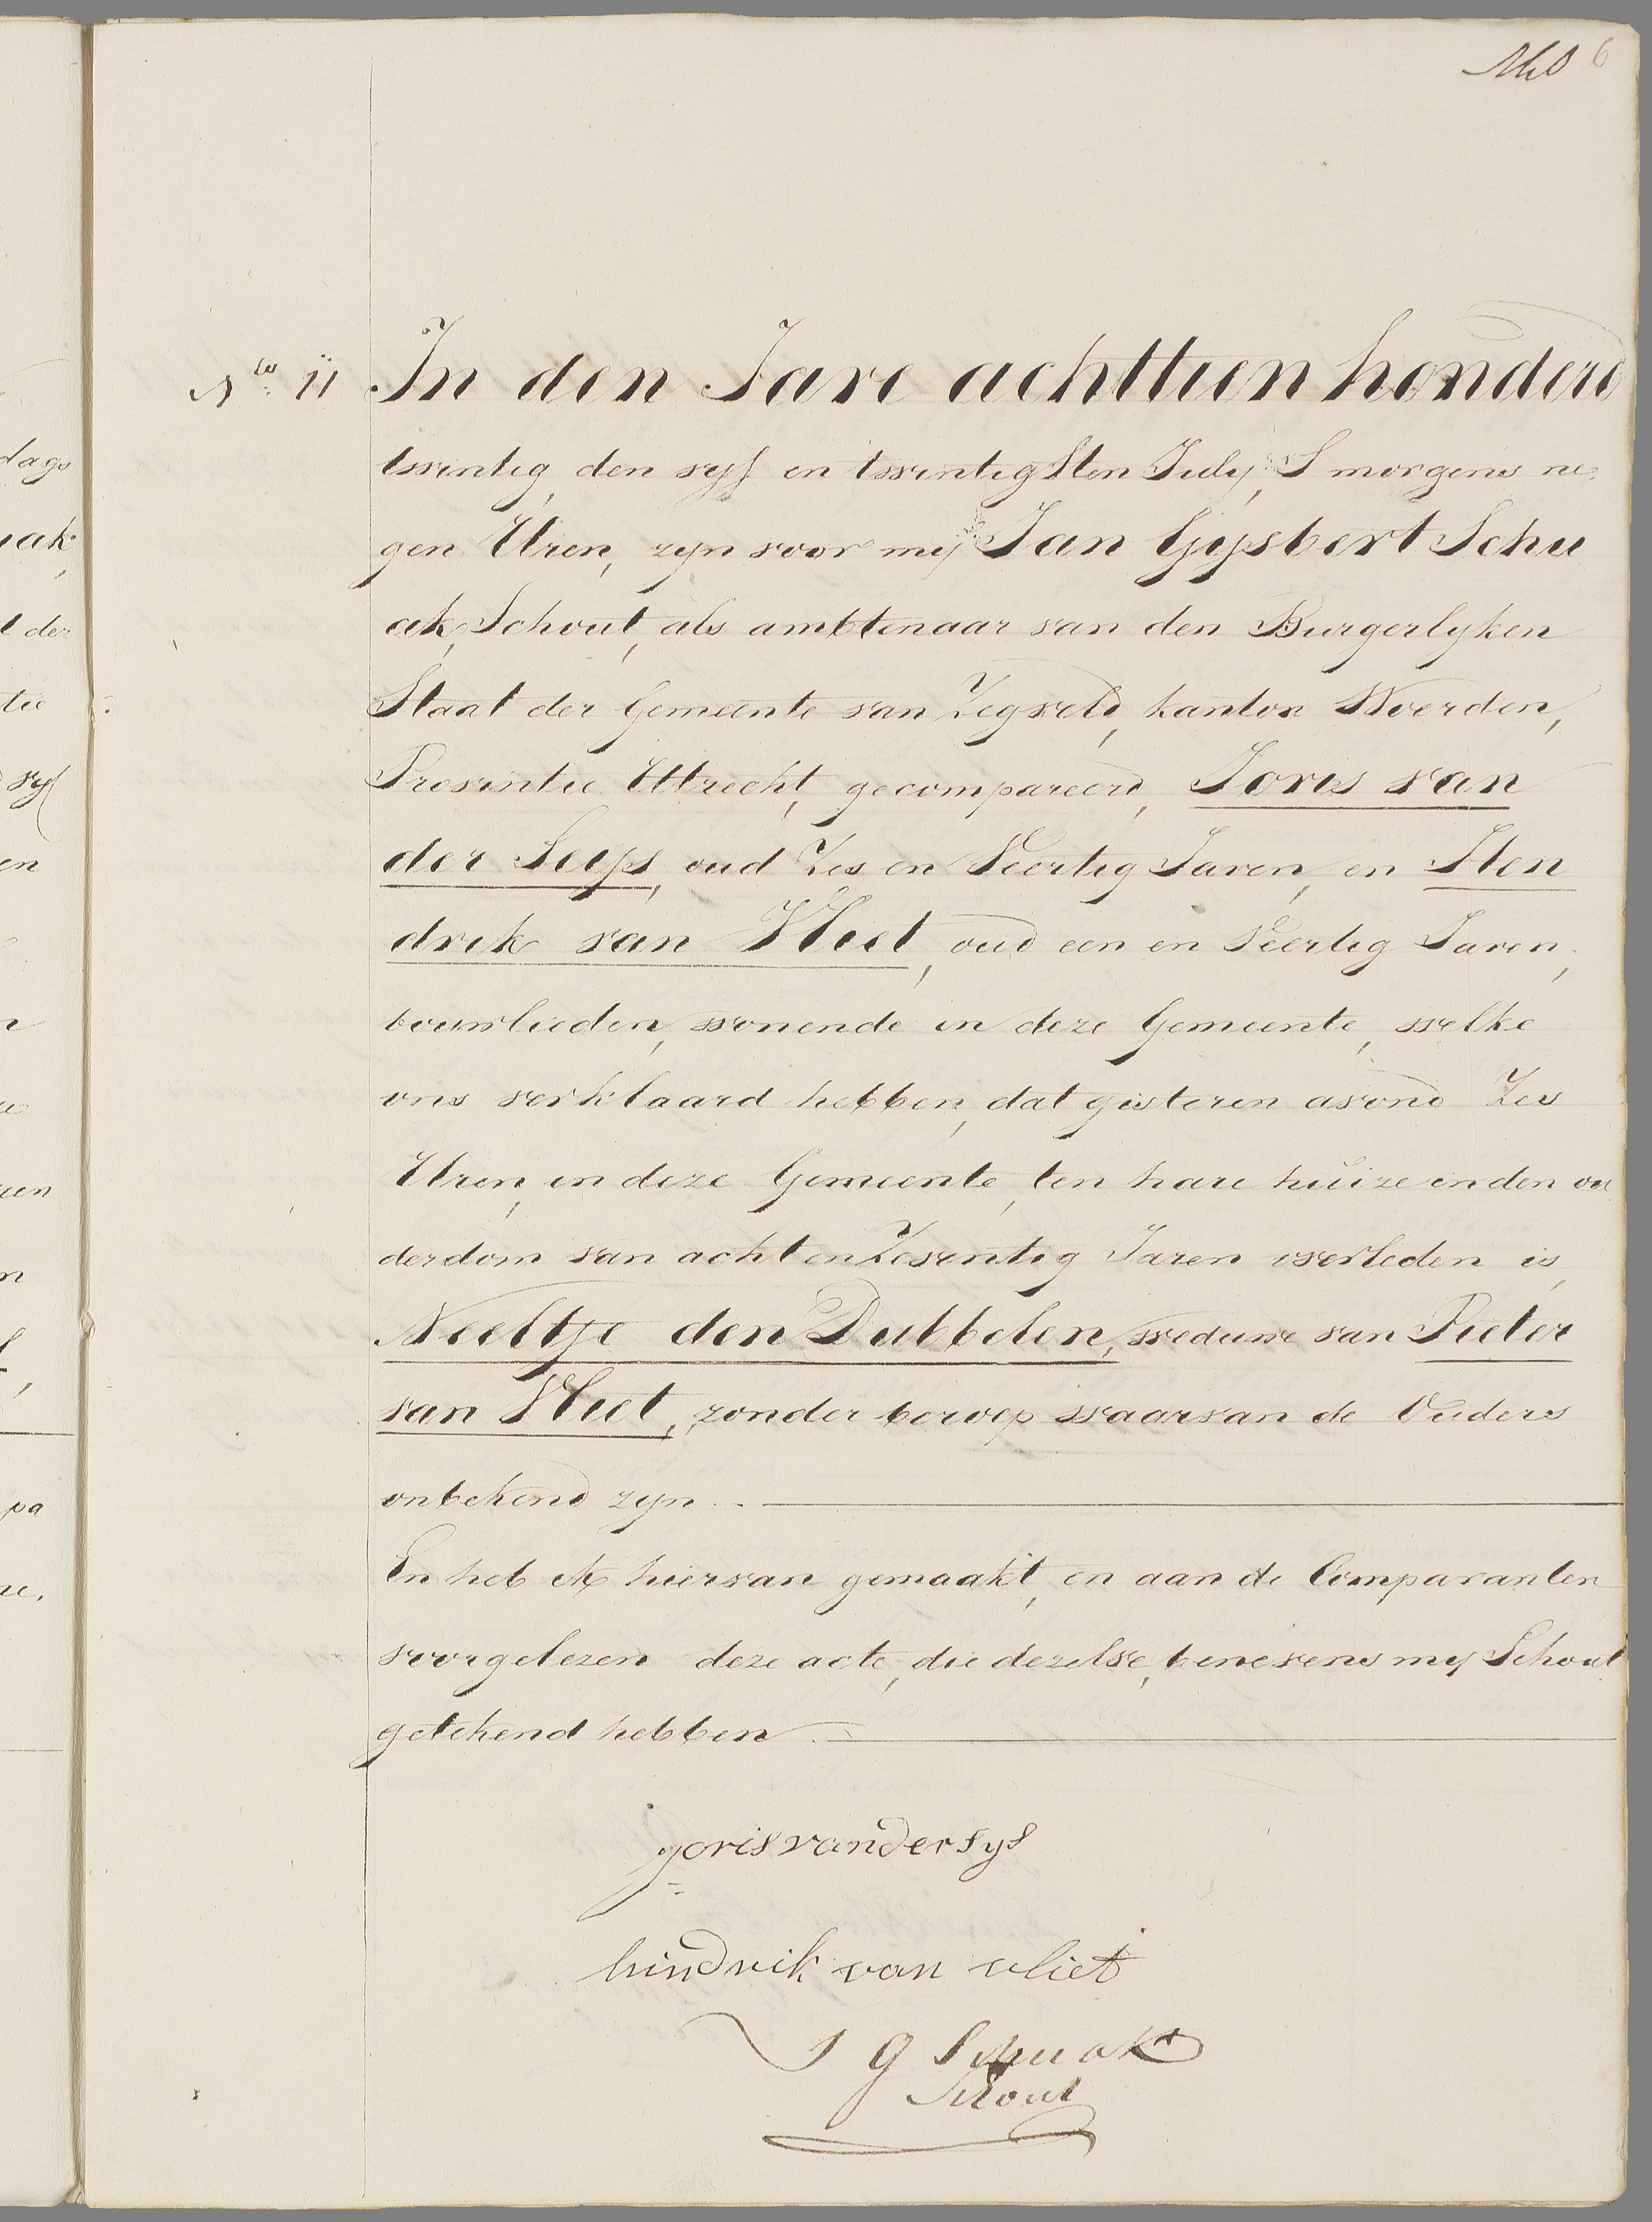 6
No. 11 In den Jare achttien honderd
twintig, den vyf en twintigsten July, S morgens ne=
gen Uren, zyn voor my Jan Gysbert Schu
ak, Schout, als ambtenaar van den Burgerlyken
Staat der Gemeente van Zegveld, kanton Woerden,
Provintie Uttrecht, gecompareerd, Joris van
der Seijs, oud Zes en Veertig Jaren, en Hen
drik van Vliet, oud een en Veertig Jaren,
bouwlieden, wonende in deze Gemeente, welke
ons verklaard hebben, dat gisteren avond Zes
Uren, in deze Gemeente, ten hare huize in den ou
derdom van acht en Zeventig Jaren overleden is,
Neeltje den Dubbelen, weduwe van Pieter
van Vliet, zonder beroep waarvan de Ouders
onbekend zyn
En heb ik hiervan gemaakt, en aan de Comparanten
voorgelezen deze acte, die dezelve, benevens my Schout
getekend hebben
joris van der sys
hindrik van vliet
J G Schuak
Schout
dags
uak
t der
tie
vyf
en
n
een
pa